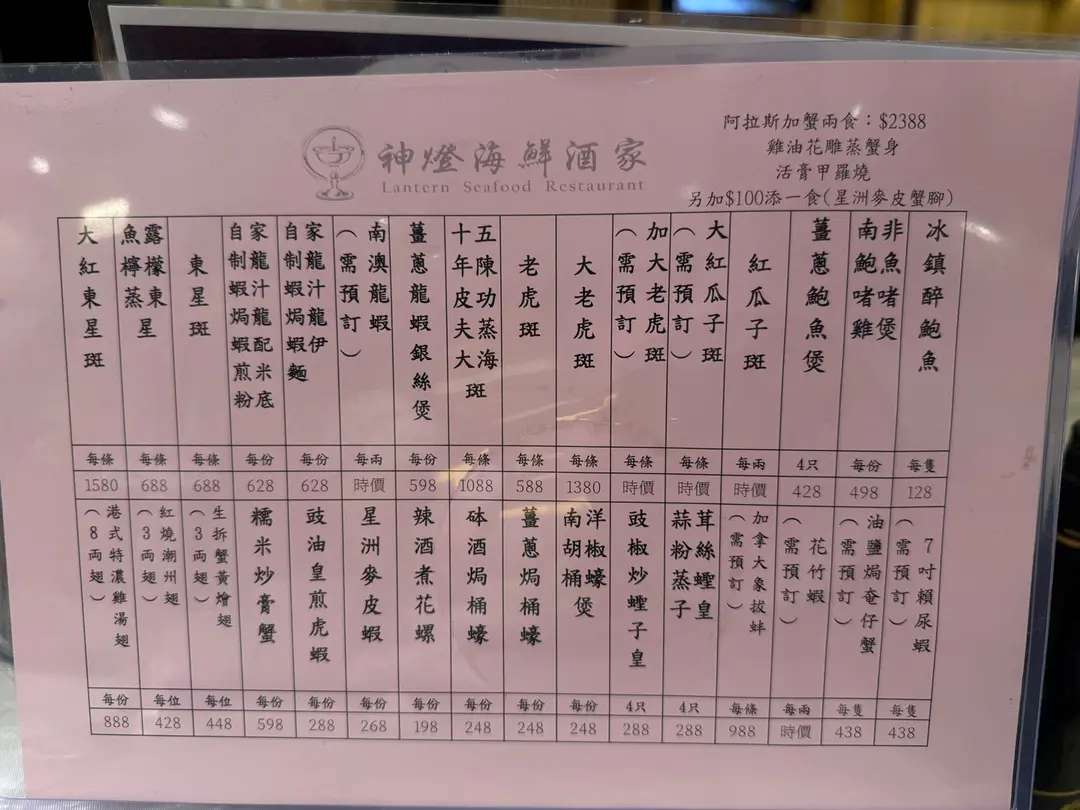 神燈海鮮酒家
Lantern Seafood Restaurant
阿拉斯加蟹兩食：$2388
雞油花雕蒸蟹身
活膏甲羅燒
另加$100添一食(星洲麥皮蟹腳)
冰鎮醉鮑魚
每隻
128
南非鮑魚啫啫雞煲
每份
498
薑蔥鮑魚煲
4只
428
紅瓜子斑
每兩
時價
大紅瓜子斑
（需預訂）
每條
時價
加大老虎斑
（需預訂）
每條
時價
大老虎斑
每條
1380
老虎斑
每條
588
十五年陳皮功夫蒸大海斑
每條
1088
薑蔥龍蝦銀絲煲
每份
598
南澳龍蝦
（需預訂）
每兩
時價
自家制龍蝦汁焗龍蝦伊麵
每份
628
自家制龍蝦汁焗龍蝦配煎米粉底
每份
628
東星斑
每條
688
魚露檸檬蒸東星
每條
688
大紅東星斑
每條
1580
7吋賴尿蝦
（需預訂）
每隻
438
油鹽焗奄仔蟹
（需預訂）
每隻
438
花竹蝦
（需預訂）
每兩
時價
加拿大象拔蚌
（需預訂）
每條
988
蒜茸粉絲蒸蟶子皇
4只
288
豉椒炒蟶子皇
4只
288
南洋胡椒桶蠔煲
每份
248
薑蔥焗桶蠔
每份
248
砵酒焗桶蠔
每份
248
辣酒煮花螺
每份
198
星洲麥皮蝦
每份
268
豉油皇煎虎蝦
每份
288
糯米炒膏蟹
每份
598
生拆蟹黃燴翅
（3両翅）
每位
448
紅燒潮州翅
（3両翅）
每位
428
港式特濃雞湯翅
（8両翅）
每份
888